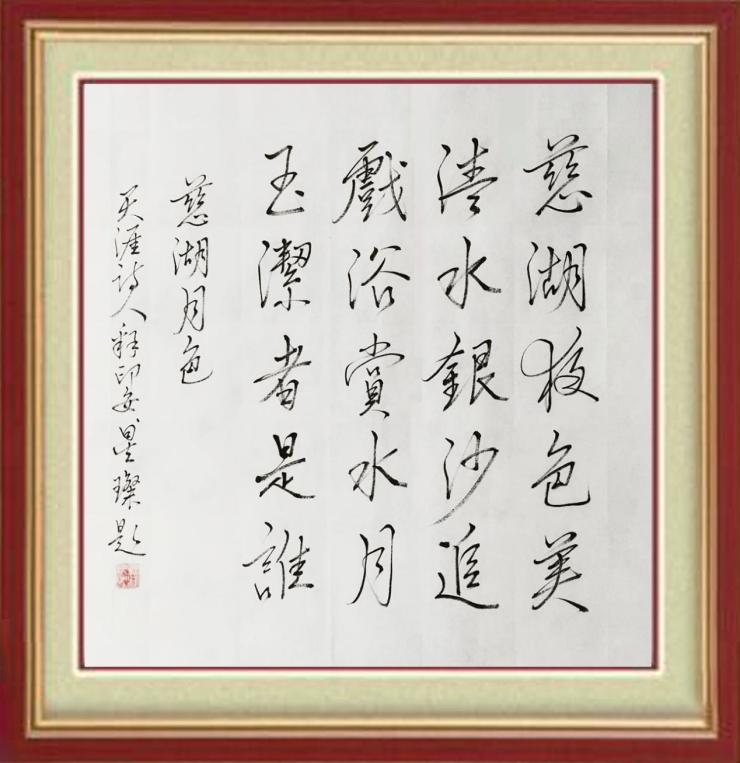 慈湖夜色美
清水銀沙追
戲浴賞水月
玉潔者是誰
慈湖月色
天涯詩人释印安璨題